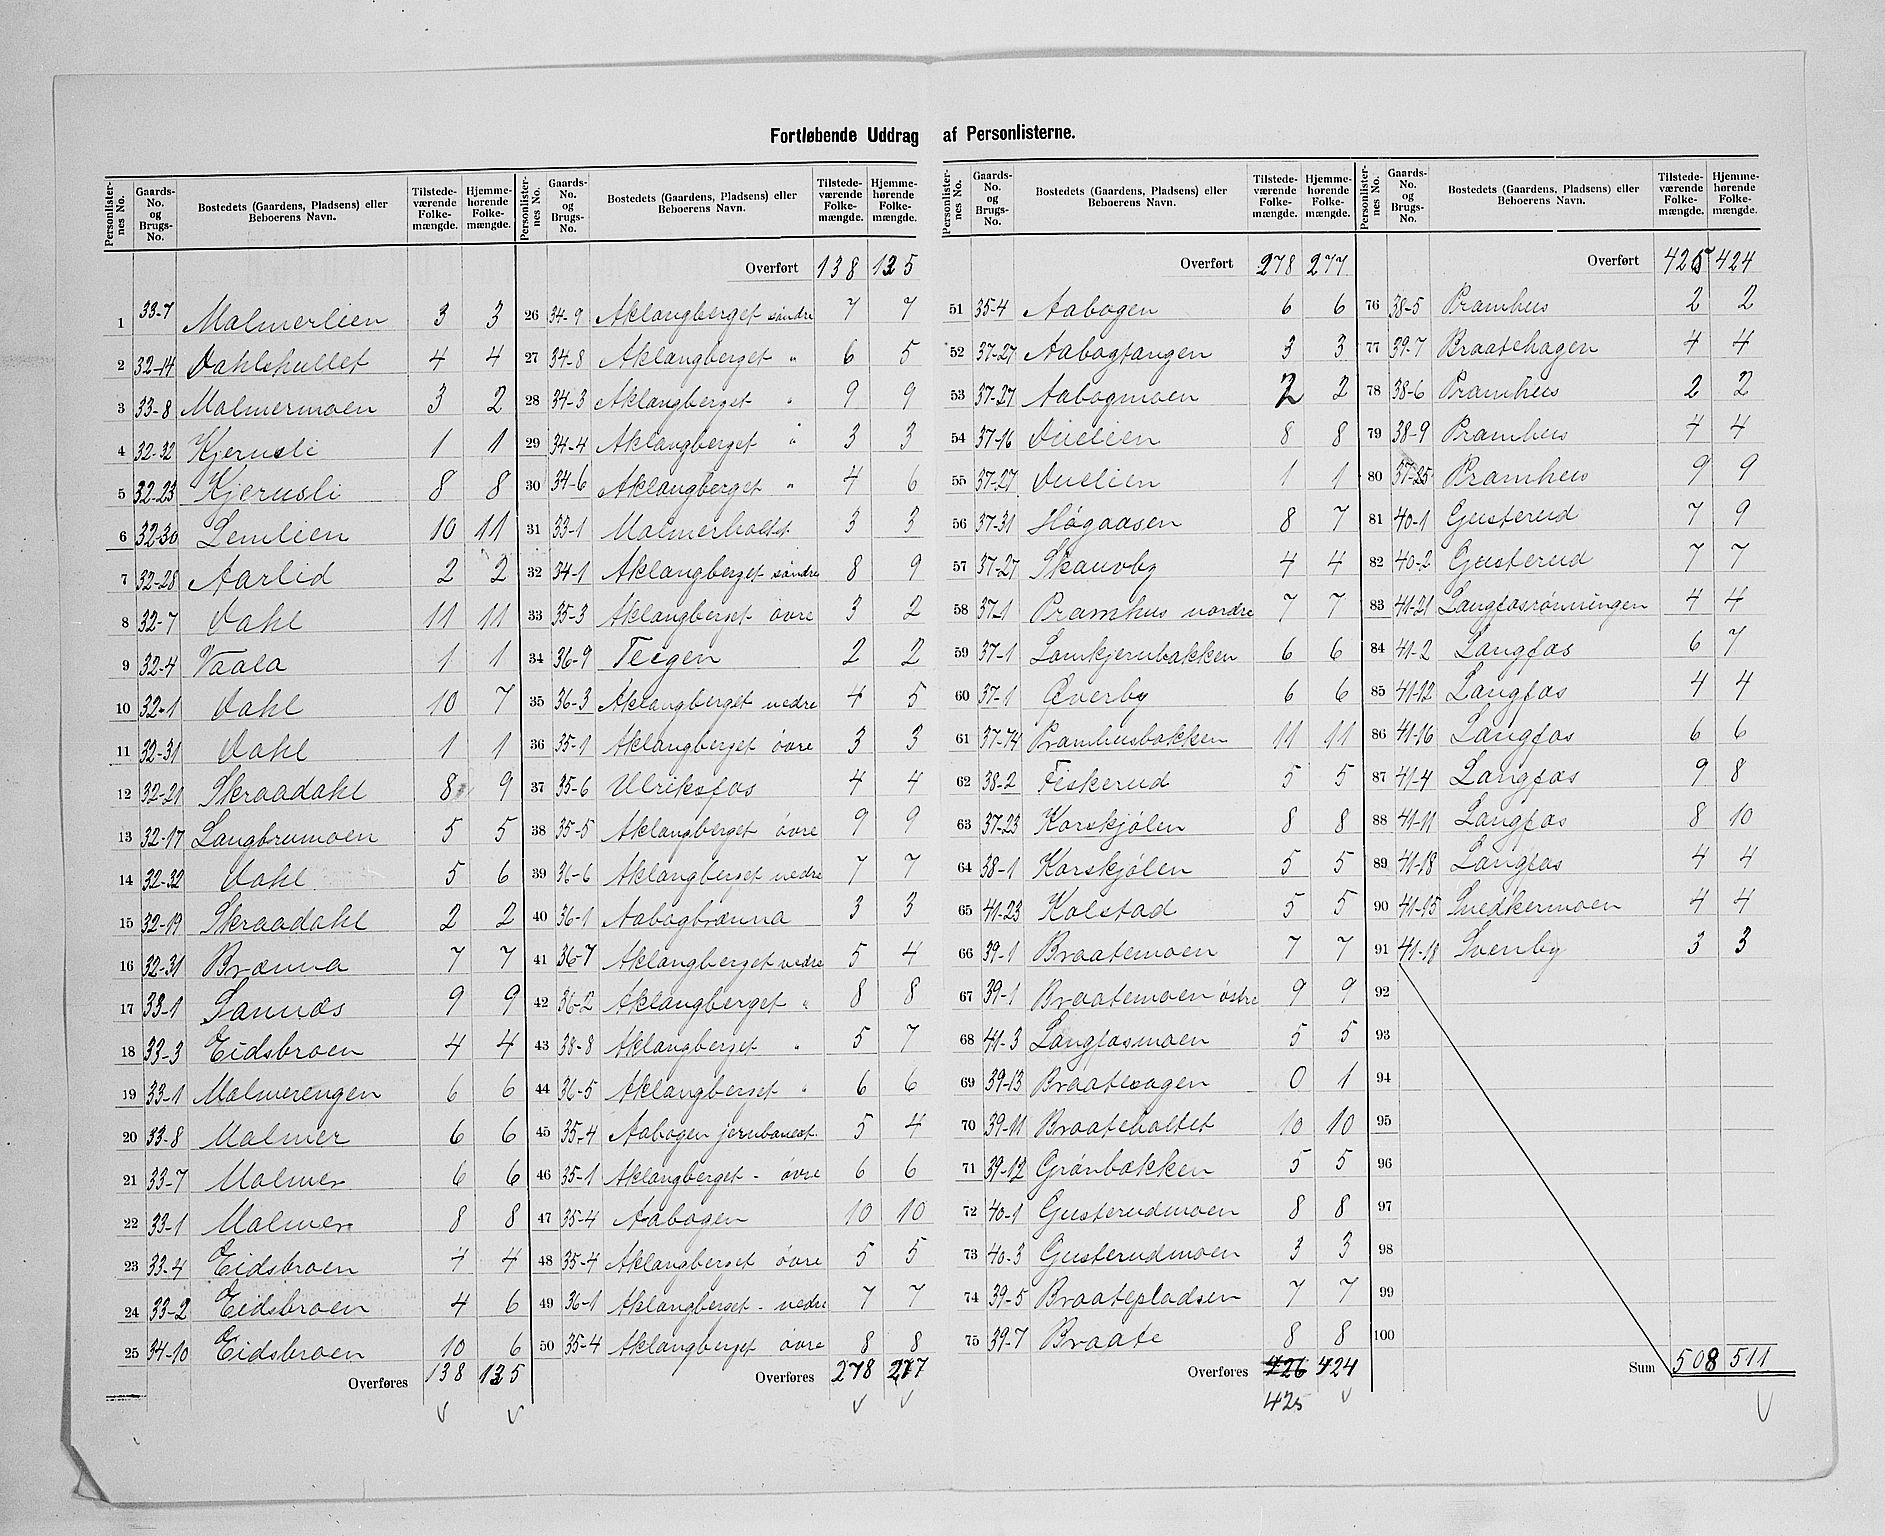 Fortløbende Uddrag af Personlisterne.
Personlisternes No. | Gaards-No. og Brugs-No. | Bostedets (Gaardens, Pladsens) eller Beboerens Navn. | Tilstedeværende Folkemængde. | Hjemmehørende Folkemængde.
1 33-7 Malmerlien 3 3
2 32-14 Dahlshullet 4 4
3 33-8 Malmermoen 3 2
4 32-32 Kjernsli 1 1
5 32-23 Kjernsli 8 8
6 32-30 Lemlien 10 11
7 32-28 Aarlid 2 2
8 32-7 Dahl 11 11
9 32-4 Vaala 1 1
10 32-1 Dahl 10 7
11 32-31 Dahl 1 1
12 32-21 Skraadahl 8 9
13 32-17 Langbrumoen 5 5
14 32-32 Dahl 5 6
15 32-19 Skraadahl 2 2
16 32-31 Brænna 7 7
17 33-1 Sannæs 9 9
18 33-3 Eidsbroen 4 4
19 33-1 Malmerengen 6 6
20 33-8 Malmer 6 6
21 33-7 Malmer 6 6
22 33-1 Malmer 8 8
23 33-4 Eidsbroen 4 4
24 33-2 Eidsbroen 4 6
25 34-10 Eidsbroen 10 6
Overføres 138 135
Personlisternes No. | Gaards-No. og Brugs-No. | Bostedets (Gaardens, Pladsens) eller Beboerens Navn. | Tilstedeværende Folkemængde. | Hjemmehørende Folkemængde.
Overført 138 135
26 34-9 Aklangberget søndre 7 7
27 34-8 Aklangberget " 6 5
28 34-3 Aklangberget " 9 9
29 34-4 Aklangberget " 3 3
30 34-6 Aklangberget " 4 6
31 33-1 Malmerholtet 3 3
32 34-1 Aklangberget søndre 8 9
33 35-3 Aklangberget øvre 3 2
34 36-9 Teigen 2 2
35 36-3 Aklangberget nedre 4 5
36 35-1 Aklangberget øvre 3 3
37 35-6 Ulriksfos 4 4
38 35-5 Aklangberget øvre 9 9
39 36-6 Aklangberget nedre 7 7
40 36-1 Aabogbrænna 3 3
41 36-7 Aklangberget nedre 5 4
42 36-2 Aklangberget " 8 8
43 38-8 Aklangberget " 5 7
44 36-5 Aklangberget " 6 6
45 35-4 Aabogen jernbanest. 5 4
46 35-1 Aklangberget - øvre 6 6
47 35-4 Aabogen 10 10
48 35-4 Aklangberget øvre 5 5
49 36-1 Aklangberget - nedre 7 7
50 35-4 Aklangberget øvre 8 8
Overføres 278 277
Personlisternes No. | Gaards-No. og Brugs-No. | Bostedets (Gaardens, Pladsens) eller Beboerens Navn. | Tilstedeværende Folkemængde. | Hjemmehørende Folkemængde.
Overført 278 277
51 35-4 Aabogen 6 6
52 37-27 Aabogtangen 3 3
53 37-27 Aabogmoen 2 2
54 37-16 Duelien 8 8
55 37-27 Duelien 1 1
56 37-31 Høgaasen 8 7
57 37-27 Skauvby 4 4
58 37-1 Pramhus nordre 7 7
59 37-1 Lomkjernbakken 6 6
60 37-1 Øverby 6 6
61 37-74 Pramhusbakken 11 11
62 38-2 Fiskerud 5 5
63 37-23 Korskjølen 8 8
64 38-1 Korskjølen 5 5
65 41-23 Kolstad 5 5
66 39-1 Braatemoen 7 7
67 39-1 Braatemoen østre 9 9
68 41-3 Langfosmoen 5 5
69 39-13 Braatesagen 0 1
70 39-11 Braateholtet 10 10
71 39-12 Grønbækken 5 5
72 40-1 Gusterudmoen 8 8
73 40-3 Gusterudmoen 3 3
74 39-5 Braatepladsen 7 7
75 39-7 Braate 8 8
Overføres 426 424
425
Personlisternes No. | Gaards-No. og Brugs-No. | Bostedets (Gaardens, Pladsens) eller Beboerens Navn. | Tilstedeværende Folkemængde. | Hjemmehørende Folkemængde.
Overført 425 424
76 38-5 Pramhus 2 2
77 39-7 Braatehagen 4 4
78 38-6 Pramhus 2 2
79 38-9 Pramhus 4 4
80 37-25 Pramhus 9 9
81 40-1 Gusterud 7 9
82 40-2 Gusterud 7 7
83 41-21 Langfosrønningen 4 4
84 41-2 Langfos 6 7
85 41-12 Langfos 4 4
86 41-16 Langfos 6 6
87 41-4 Langfos 9 8
88 41-11 Langfos 8 10
89 41-18 Langfos 4 4
90 41-15 Snedkermoen 4 4
91 41-18 Svenby 3 3
92
93
94
95
96
97
98
99
100
Sum 508 511